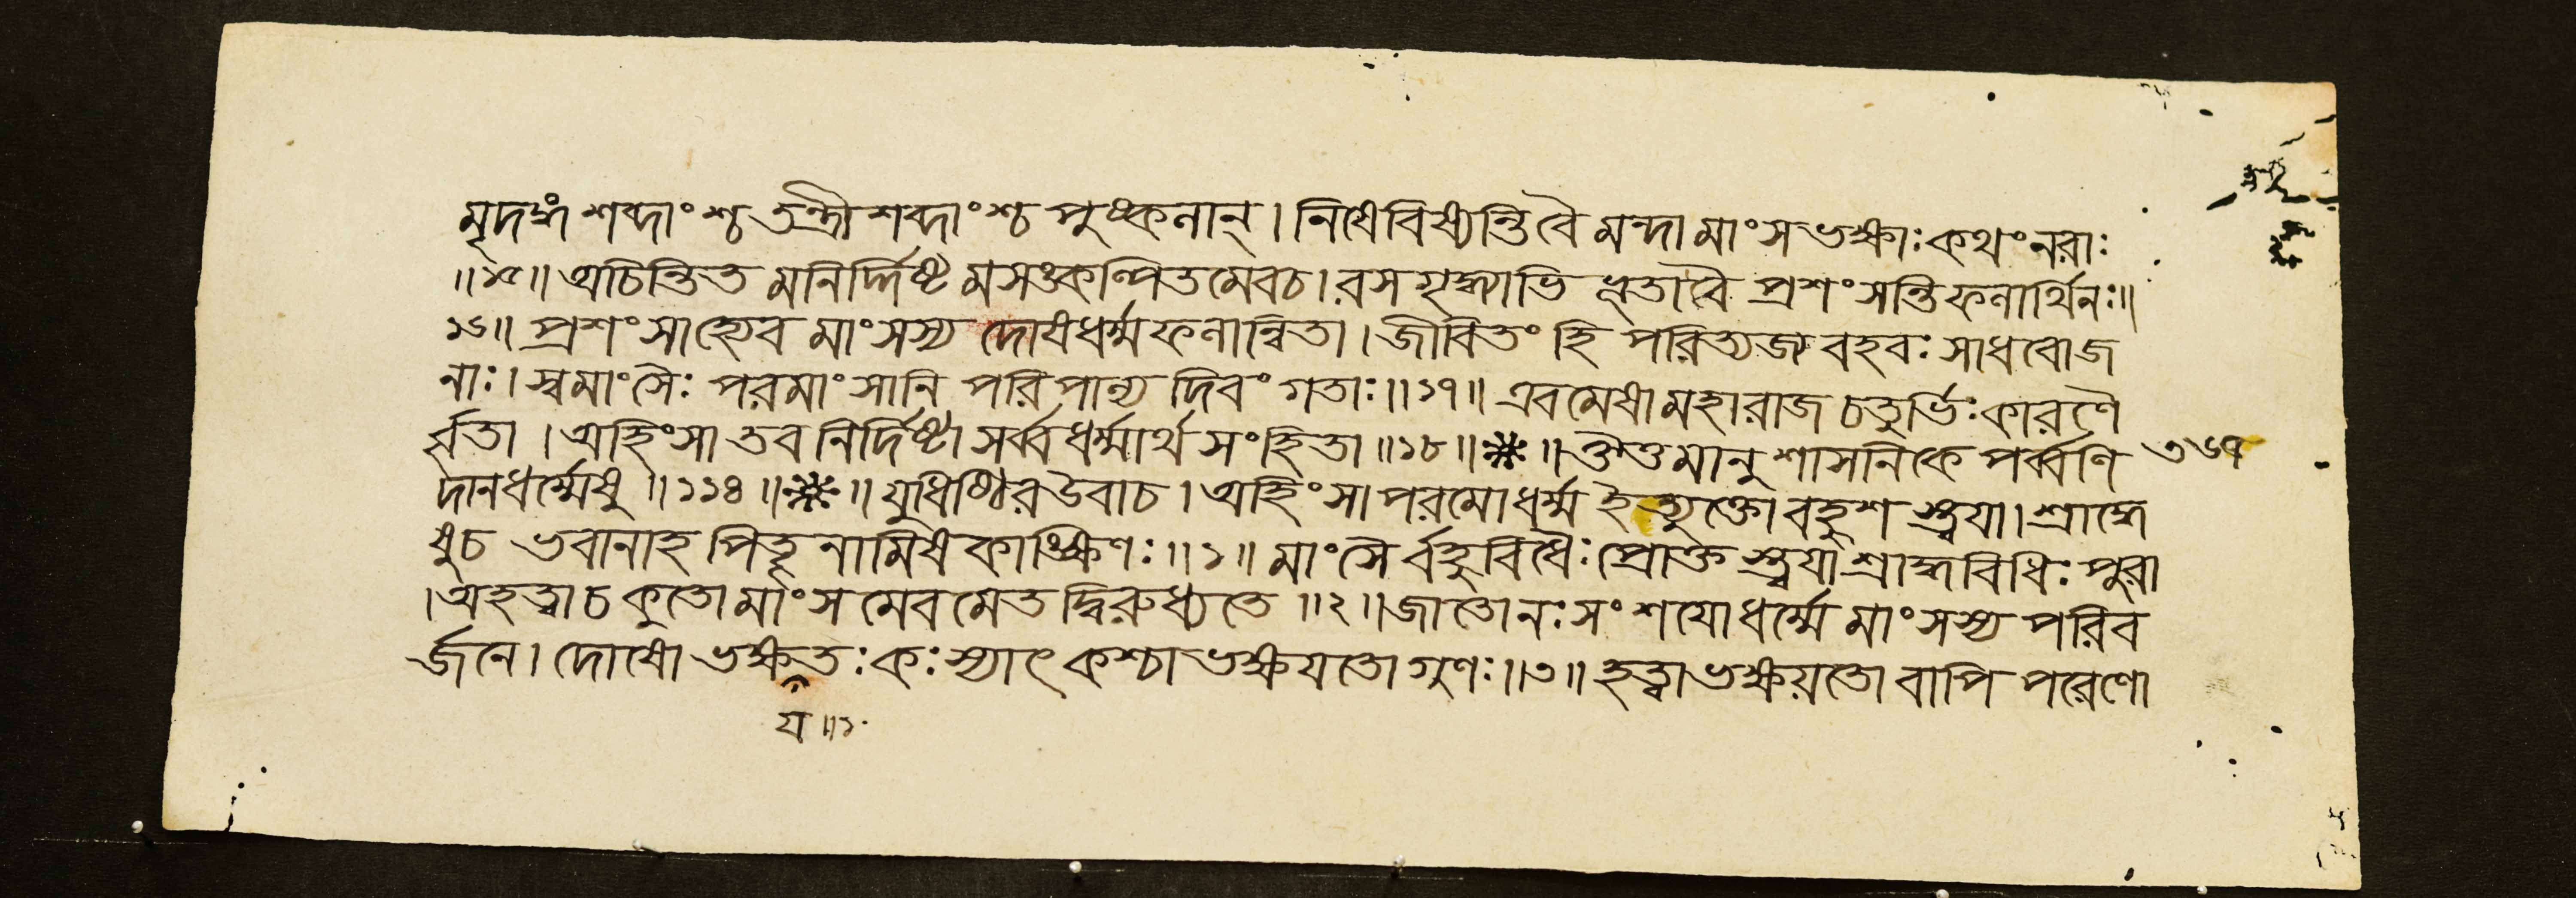 মৃদঙ্গ শব্দাংশ্চ তন্ত্রী শব্দাংশ্চ পুষ্কলান্। নিষেবিষ্যন্তি বৈ মন্দা মাংসভক্ষাঃ কথং নরাঃ
॥১৫॥ অচিন্তিত মনির্দ্দিষ্ট মসঙ্কল্পিতমেবচ। রস গৃদ্ধ্যাভি ভূতাবৈ প্রশংসন্তি ফলার্থিনঃ॥
১৬॥ প্রশংসাহ্যেব মাংসস্য দোষধর্ম্মফলান্বিতা। জীবিতং হি পরিত্যজ্য বহবঃ সাধবোজ
নাঃ। স্বমাংসৈঃ পরমাংসানি পরিপাল্য দিবং গতাঃ॥১৭॥ এবমেষামহারাজ চতুর্ভিঃ কারণৈ
র্বৃতা। অহিংসা তব নির্দিষ্টা সর্ব্বধর্ম্মার্থ সংহিতা॥১৮॥❋॥ ঔ৩মানুশাসনিকে পর্ব্বণি ৩৬৭
দানধর্ম্মেষু॥১১৪॥❋॥ যুধিষ্ঠির উবাচ। অহিংসা পরমোধর্ম্ম ইত্যুক্তো বহুশ স্ত্বযা। শ্রাদ্ধে
ষুচ ভবানাহ পিতৄনামিষ কাঙ্ক্ষিণঃ॥১॥ মাংসৈর্বহুবিধৈঃ প্রোক্ত স্ত্বযা শ্রাদ্ধবিধিঃ পুরা
। অহত্বাচ কুতো মাংস মেবমেতদ্বিরুধ্যতে॥২॥ জাতোনঃ সংশযোধর্ম্মে মাংসস্য পরিব
র্জনে। দোষো ভক্ষতঃ কঃ স্যাৎ কশ্চাভক্ষযতো গুণঃ॥৩॥ হত্বা ভক্ষয়তো বাপি পরেণো
য॥১